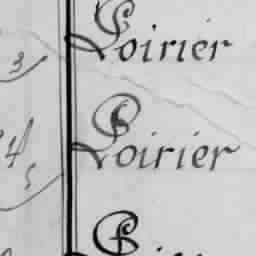 3 Poirier
4 Poirier
5